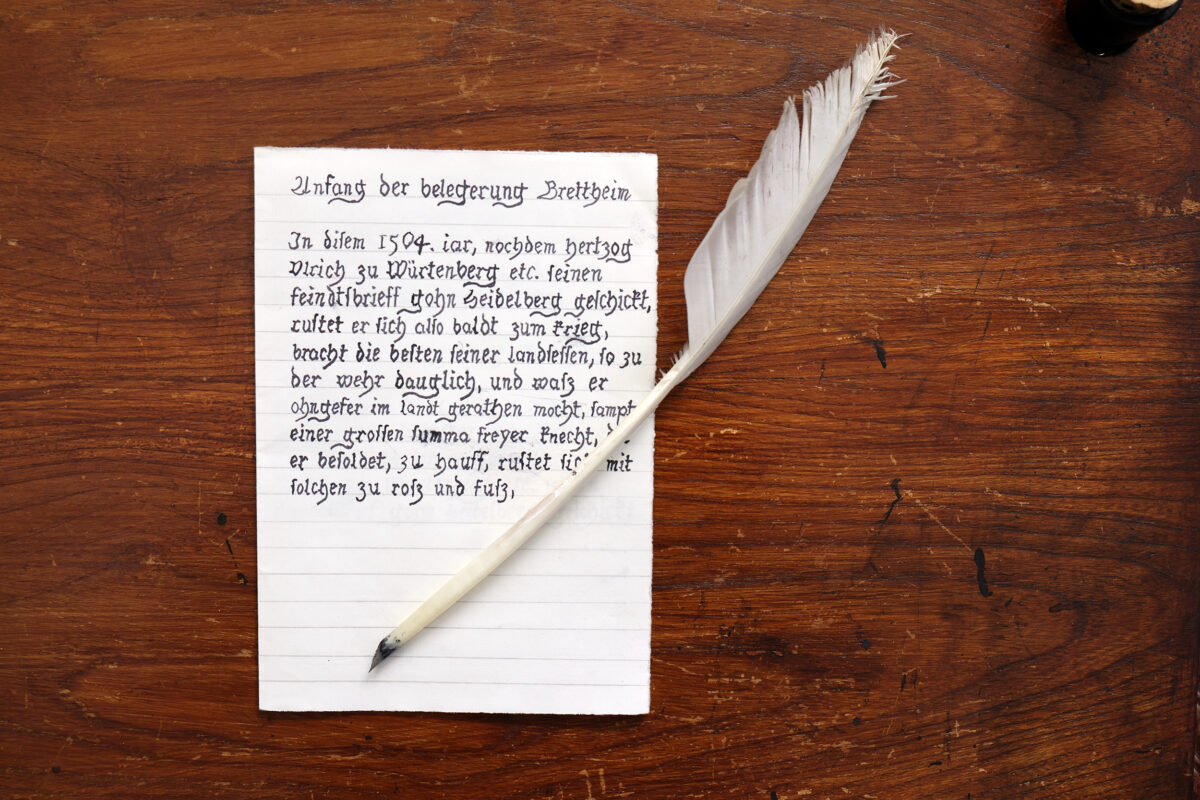 Anfang der belegerung Brettheim
In diſem 1504. iar, nochdem hertzog
Vlrich zu Würtenberg etc. ſeinen
feindtſbrieff gohn Heidelberg geſchickt,
ruſtet er ſich alſo baldt zum krieg,
bracht die beſten ſeiner landſeſſen, ſo zu
der wehr dauglich, und waſz er
ohngefer im landt gerathen mocht, ſampt
einer groſſen ſumma freyer knecht,
er beſoldet, zu hauff, ruſtet ſich mit
ſolchen zu roſz und fuſz,